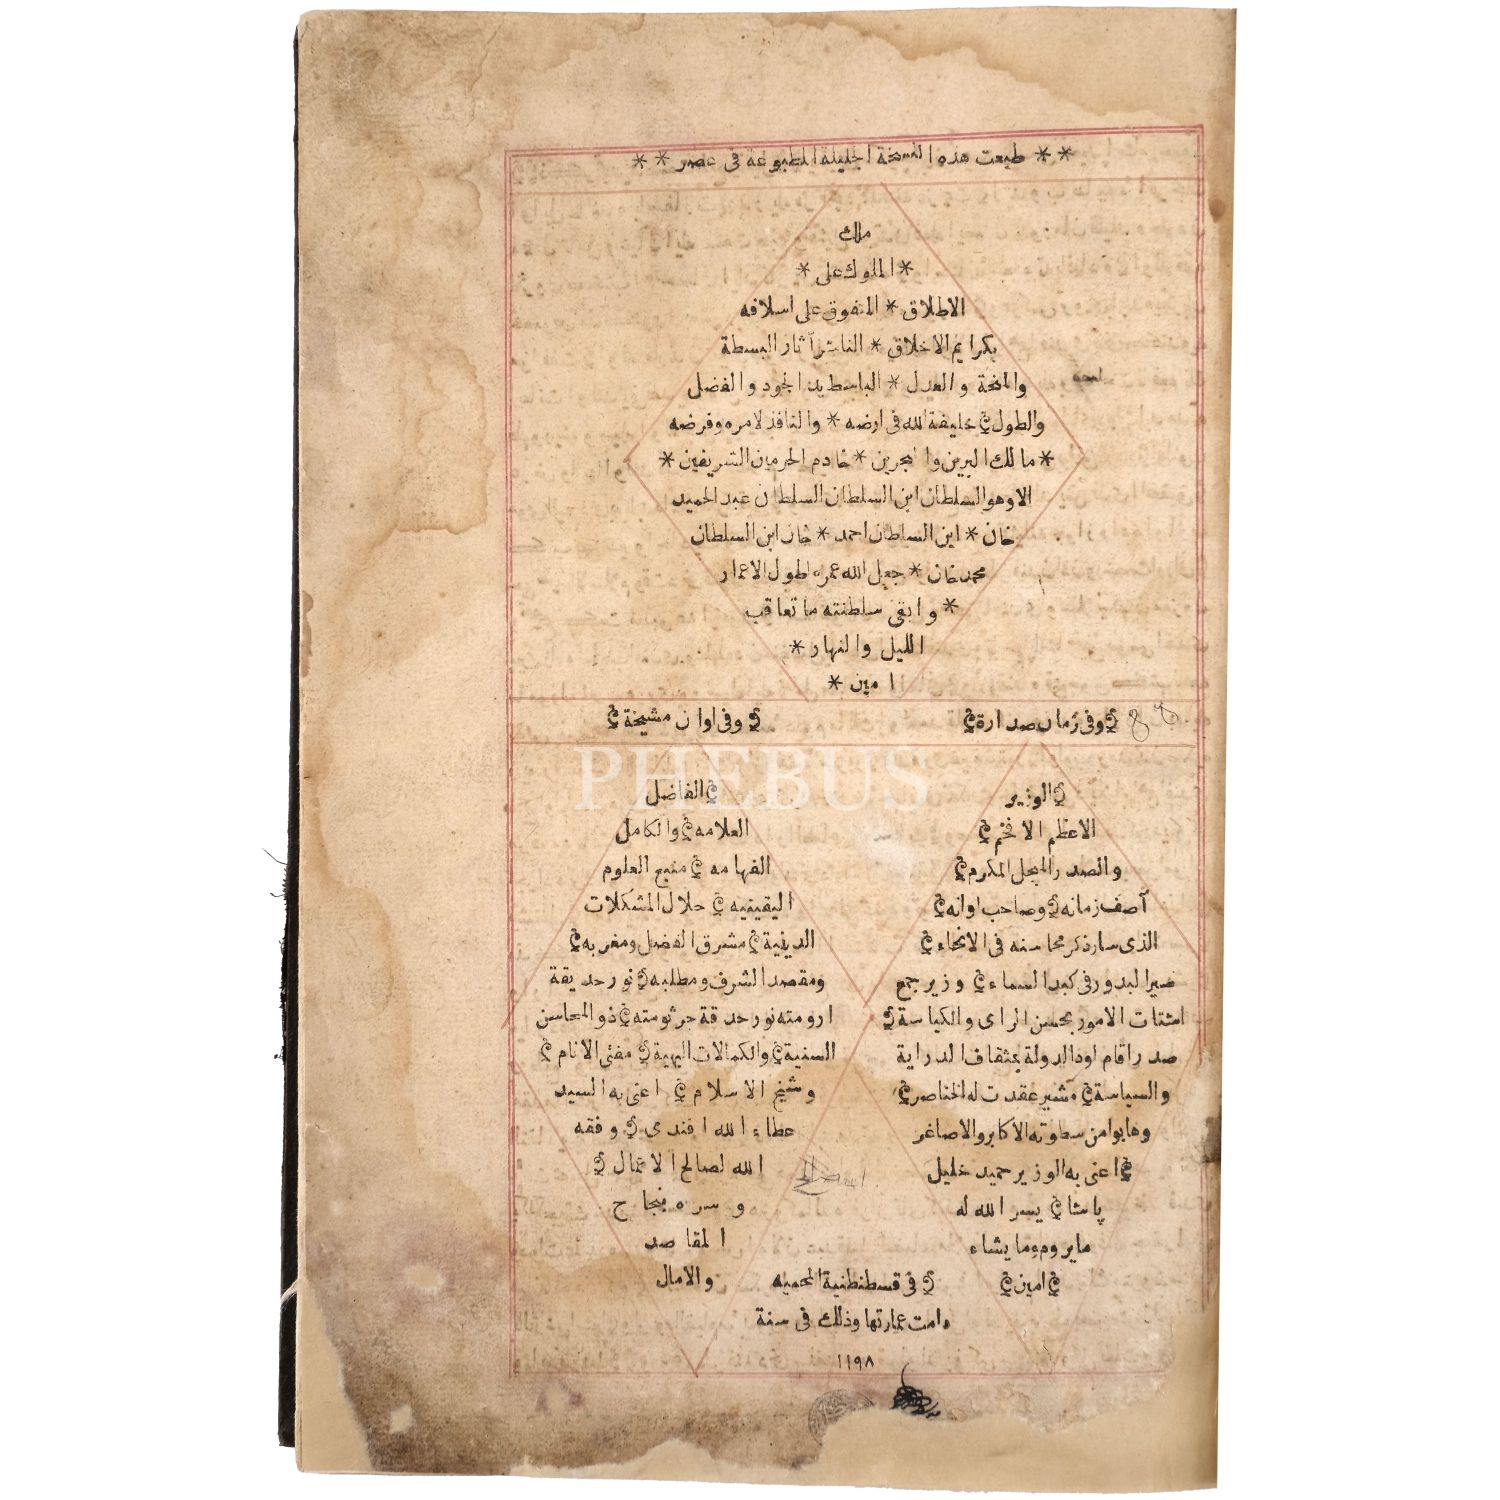 ** طبعت هذه النسخة الجليلة المطبوعة فى عصر **
ملك
* الملوك على *
الاطلاق * المتفوق على اسلافه
بكرايم الاخلاق * الناشر آثار البسطة
والمنحة والعدل * الباسط يد الجود والفضل
والطول خليفة الله فى ارضه * والنافذ لامره وفرضه
* مالك البرين والبحرين * خادم الحرمين الشريفين *
الا وهو السلطان ابن السلطان السلطان عبد الحميد
خان * ابن السلطان احمد * خان ابن السلطان
محمد خان * جعل الله عمره اطول الاعمار
* وابقى سلطنته ما تعاقب
الليل والنهار *
امين *
وفى زمان صدارة
الوزير
الاعظم الافخم
والصدر المبجل المكرم
آصف زمانه وصاحب اوانه
الذى سار ذكر محاسنه فى الانحاء
سير البدور فى كبد السماء وزير جمع
اشتات الامور بحسن الراى والكياسة
صدر اقام اود الدولة بثقاف الدراية
والسياسة مشير عقدت له الخناصر
وهابوا من سطوته الاكابر والاصاغر
اعنى به الوزير حميد خليل
پاشا يسر الله له
ما يروم وما يشاء
امين
وفى اوان مشيخة
الفاضل
العلامه والكامل
الفهامه منبع العلوم
اليقينيه حلال المشكلات
الدينية مشرق الفضل ومغربه
ومقصد الشرف ومطلبه نور حديقة
ارومته نور حدقة جرثومته ذو المحاسن
السنية والكمالات البهية مفتى الانام
وشيخ الاسلام اعنى به السيد
عطاء الله افندى وفقه
الله لصالح الاعمال
وسره بنجاح
المقاصد
والامال
فى قسطنطنية المحميه
دامت عمارتها وذلك فى سنة
١١٩٨
PHEBUS